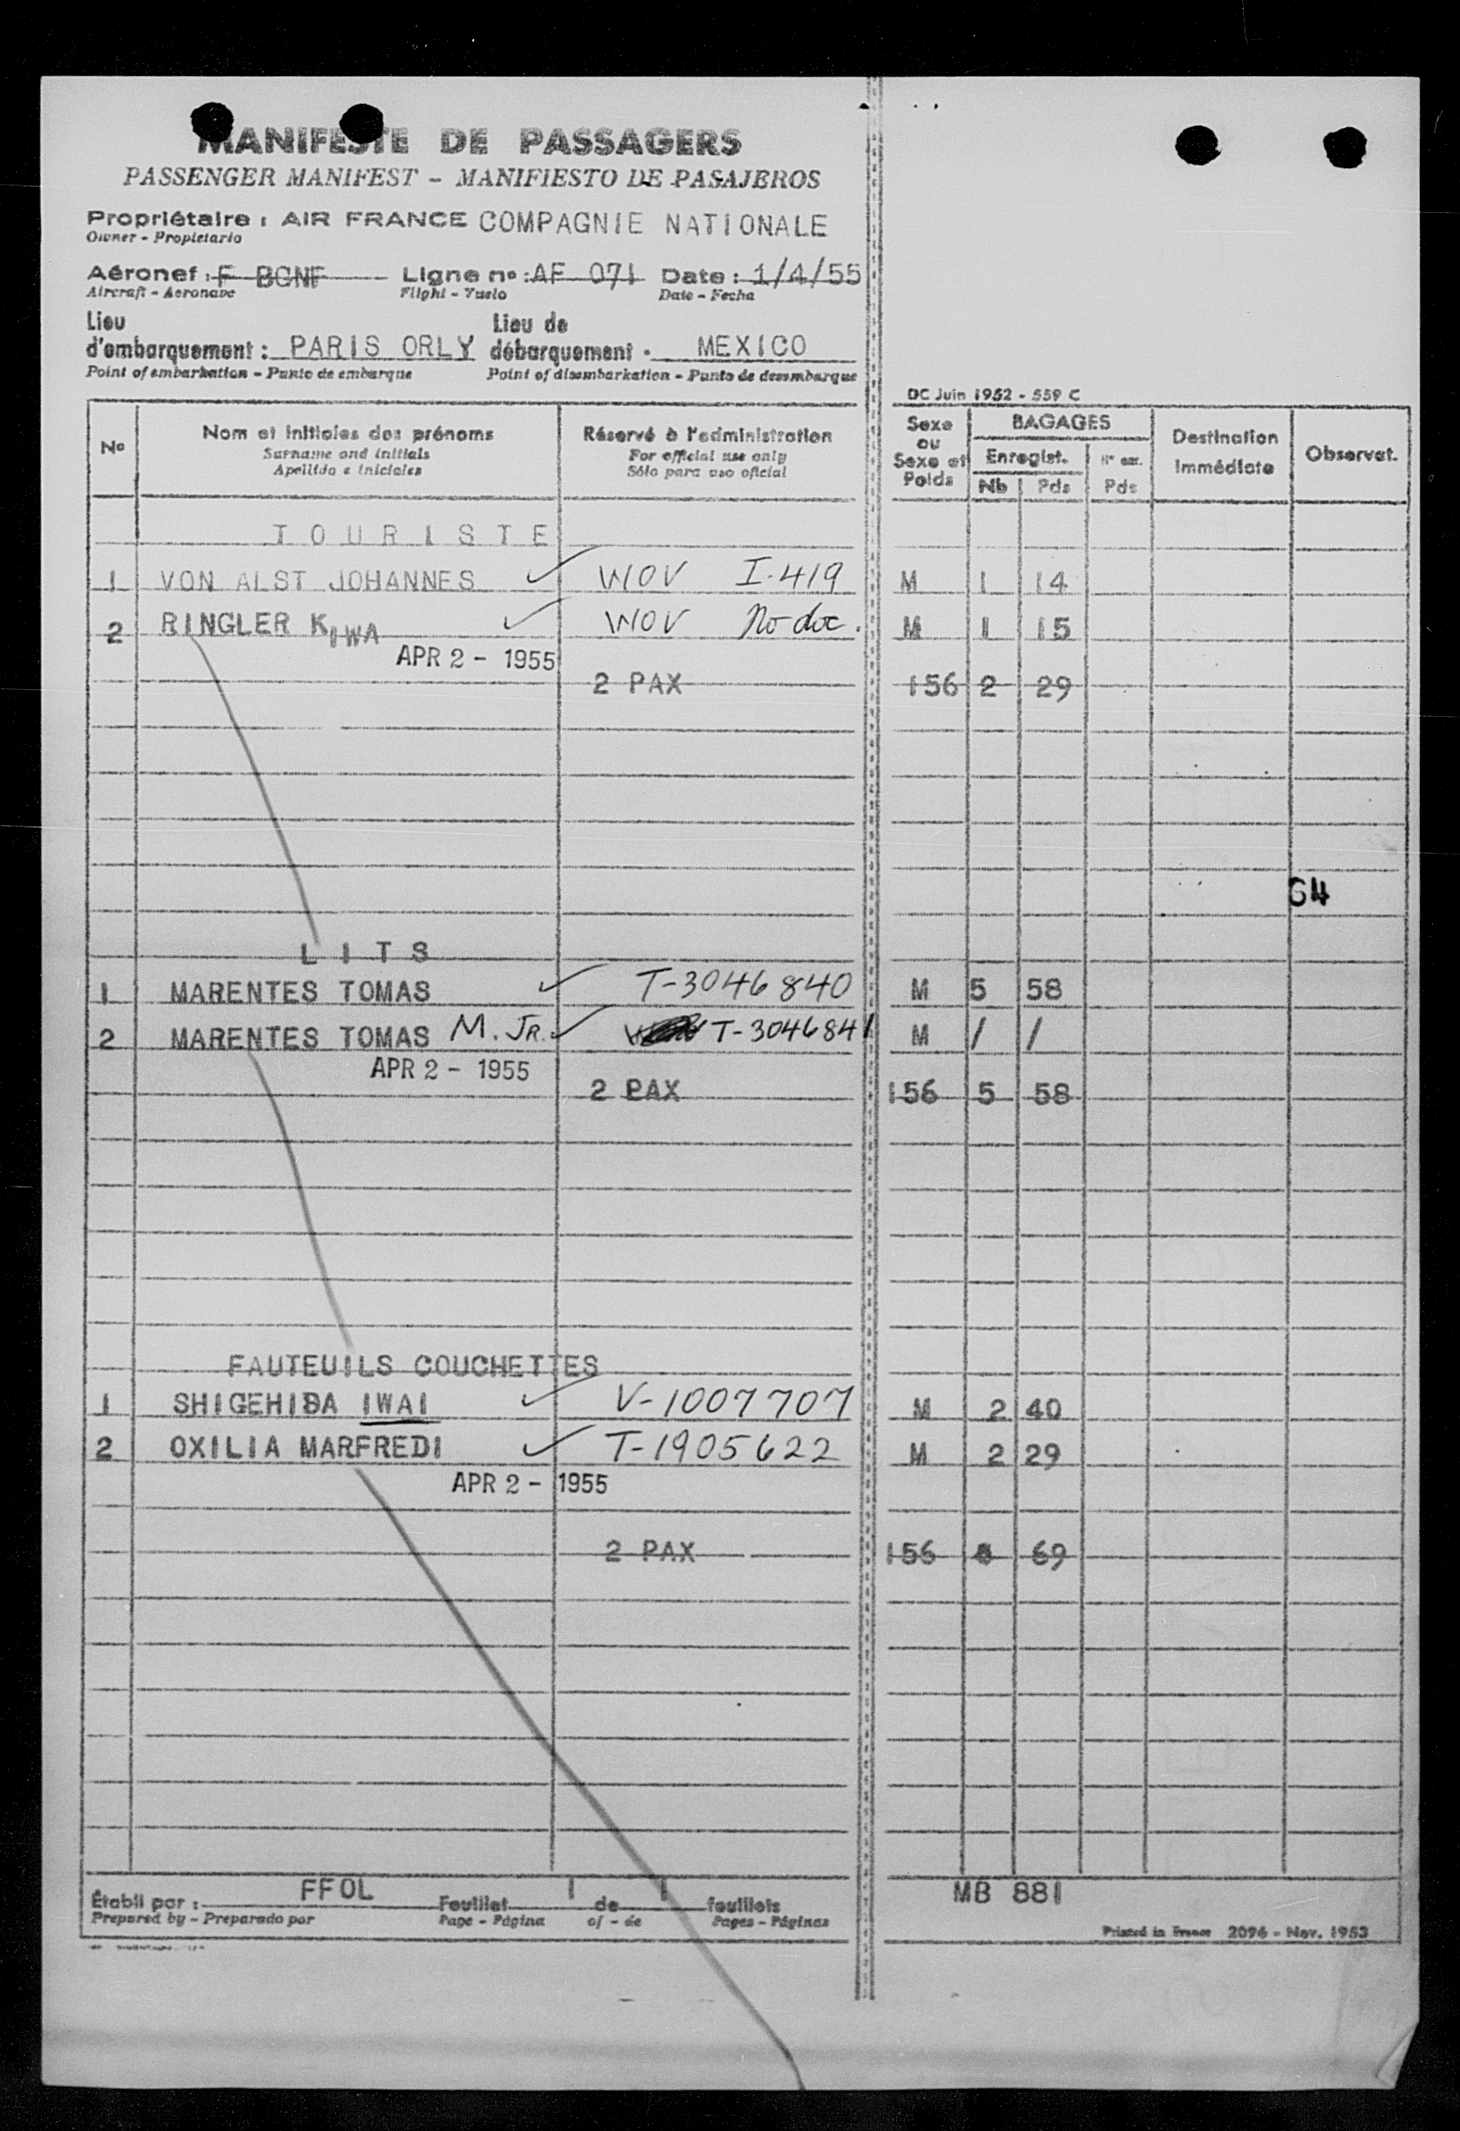 MANIFESTE DE PASSAGERS
PASSENGER MANIFEST - MANIFIESTO DE PASAJEROS
Propriétaire : AIR FRANCE COMPAGNIE NATIONALE
Owner - Propietario
Aéronef : F BGNF Ligne no : AF 071 Date : 1/4/55
Aircraft - Aeronave Flight - Vuelo Date - Fecha
Lieu d'embarquement : PARIS ORLY Lieu de débarquement - MEXICO
Point of embarkation - Punto de embarque Point of disembarkation - Punto de desembarque
DC Juin 1952 - 559 C
No Nom et initiales des prénoms Réservé à l'administration Sexe ou Sexe et Poids BAGAGES Destination Immédiate Observat.
Surname and initials For official use only Enregist. Nb Pds Pds
Apellido e iniciales Sólo para uso oficial
TOURISTE
1 VON ALST JOHANNES ✓ WOV I-419 M 1 14
2 RINGLER KIWA ✓ WOV No doc. M 1 15
APR 2 - 1955
2 PAX 156 2 29
64
LITS
1 MARENTES TOMAS ✓ T-3046840 M 5 58
2 MARENTES TOMAS M. JR. ✓ T-3046841 M / /
APR 2 - 1955
2 PAX 156 5 58
FAUTEUILS COUCHETTES
1 SHIGEHIDA IWAI ✓ V-1007707 M 2 40
2 OXILIA MARFREDI ✓ T-1905622 M 2 29
APR 2 - 1955
2 PAX 156 69
Établi par : FFOL Feuillet 1 de 1 feuillets MB 881
Prepared by - Preparado por Page - Página of - de Pages - Páginas
Printed in France 2096 - Nov. 1953